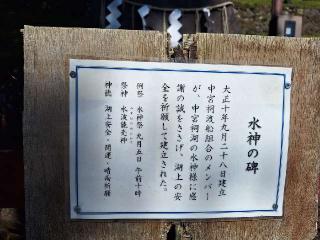 水神の碑
大正十年九月二十八日建立
中宮祠渡船組合のメンバー
が、中宮祠湖の水神様に感
謝の誠をささげ、湖上の安
全を祈願して建立された。
例祭 水神祭 九月五日 午前十時
祭神 水波能売神
神徳 湖上安全・開運・晴雨祈願